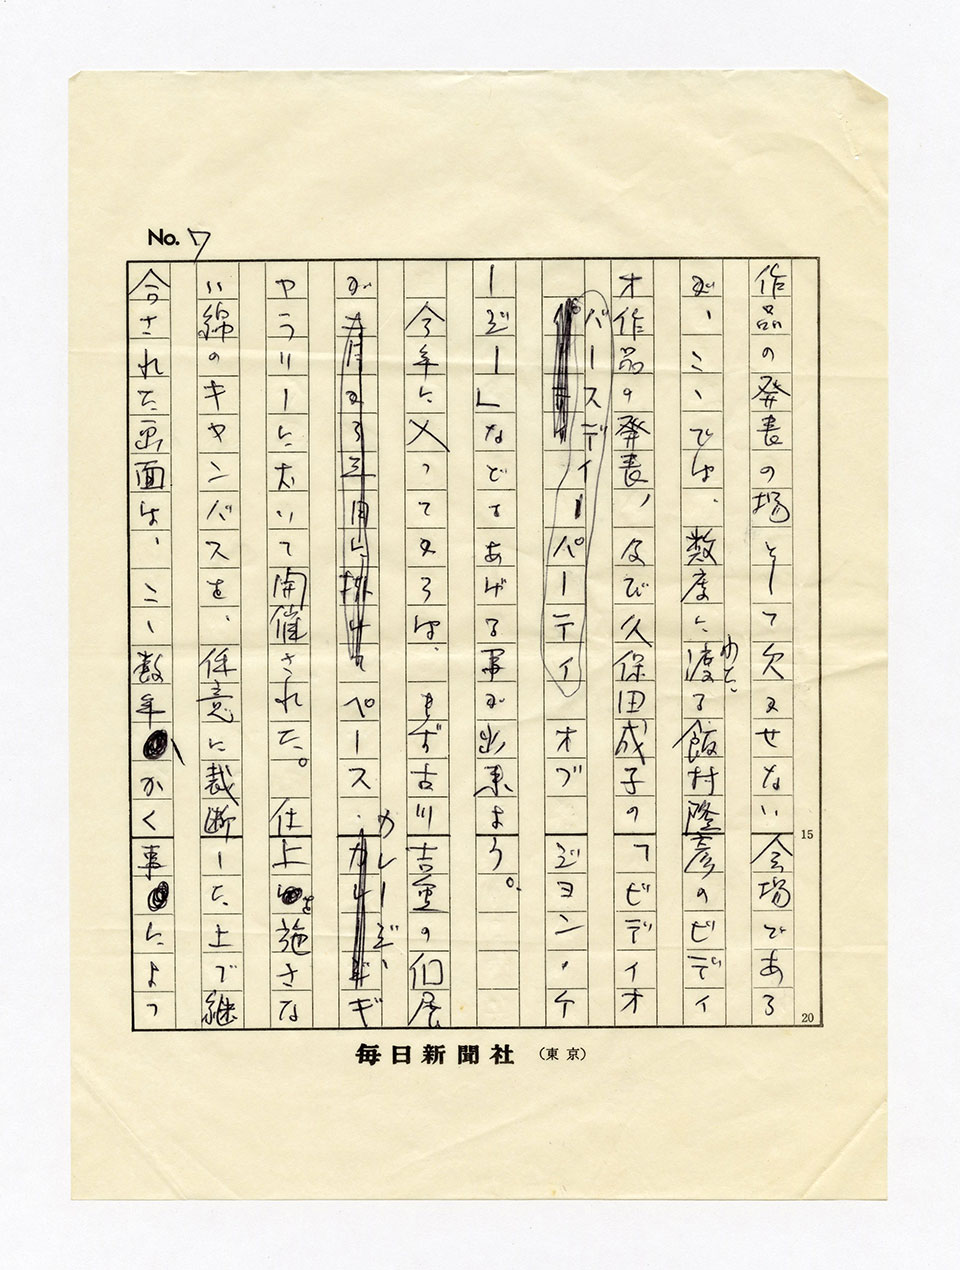 No. 7
作品の発表の場として欠かせない会場である
が、こゝでは、数度に渡る飯村隆彦のビディ
わた
オ作品の発表、及び久保田成子の「ビディオ
バースディーパーティ オブ ジョン・ケ
ージ」などをあげる事が出来よう。
今年に入ってからは、まず古川吉重の個展
が ペース・
カレーヂ、
ギ
ャラリーに於いて開催された。仕上を施さな
い綿のキャンバスを、任意に裁断した上で継
合された画面は、こゝ数年、かく事によっ
15
20
毎日新聞社 (東京)